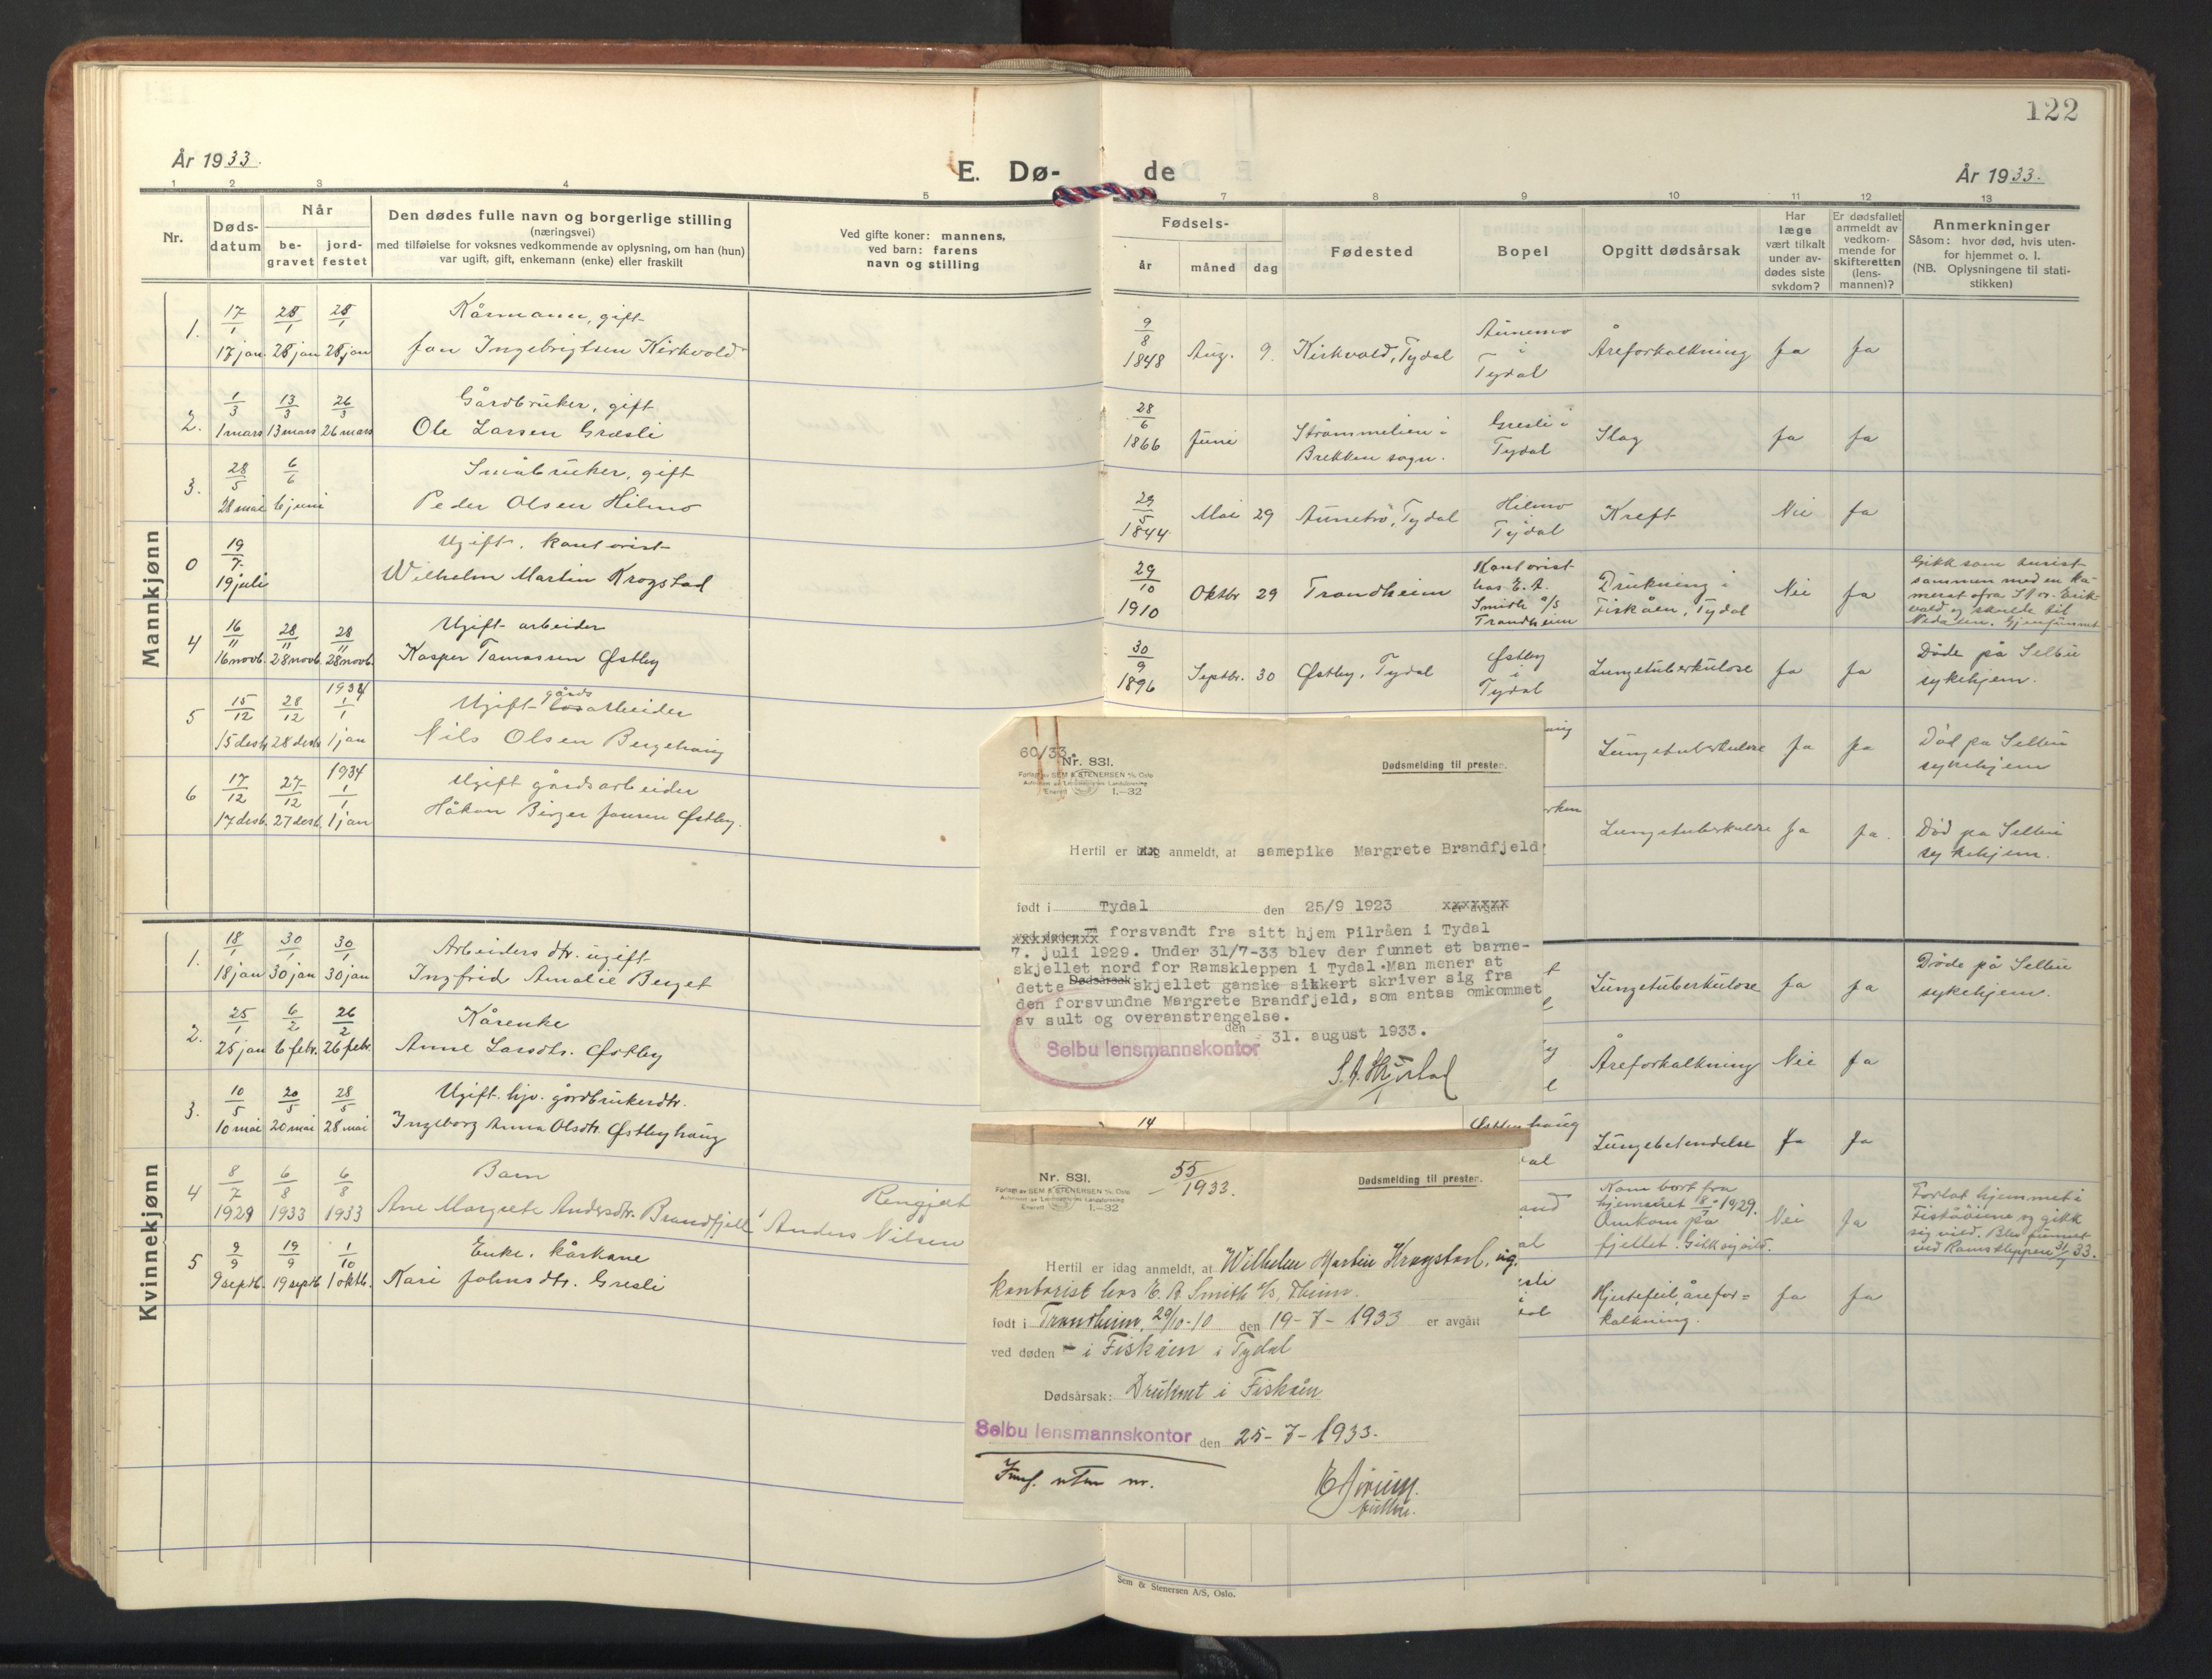 122
År 1933.
E. Dø-
de
År 1933.
1 2 3 4 5
7 8 9 10 11 12 13
Nr.
Døds-
datum
Når
be-
gravet
jord-
festet
Den dødes fulle navn og borgerlige stilling
(næringsvei)
med tilføielse for voksnes vedkommende av oplysning, om han (hun)
var ugift, gift, enkemann (enke) eller fraskilt
Ved gifte koner: mannens,
ved barn: farens
navn og stilling
Fødsels-
år måned dag
Fødested
Bopel
Opgitt dødsårsak
Har
læge
vært tilkalt
under av-
dødes siste
sykdom?
Er dødsfallet
anmeldt av
vedkom-
mende for
skifteretten
(lens-
mannen)?
Anmerkninger
Såsom: hvor død, hvis uten-
for hjemmet o. l.
(NB. Oplysningene til stati-
stikken)
Mannkjønn
1. 17/1 28/1 28/1 Kårmann, gift
17 jan 28 jan 28 jan Jon Ingebrigtsen Kirkvold
9/8 1848 Aug. 9. Kirkvold, Tydal
Aunemo i Tydal
Åreforkalkning Ja Ja
2. 1/3 13/3 26/3 Gårdbruker, gift
1 mars 13 mars 26 mars Ole Larsen Græsli
28/6 1866 Juni
Strømmelien i
Brekken sogn.
Gresli i Tydal
Slag Ja Ja
3. 28/5 6/6 Småbruker, gift
28 mai 6 juni Peder Olsen Hilmo
29/5 1844 Mai 29 Aunetrø, Tydal
Hilmo Tydal
Kreft Nei Ja
0 19/7. Ugift, kontorist
19 juli Wilhelm Martin Krogstad
29/10 1910 Oktbr 29 Trondheim
Kontorist
hos E. A.
Smith a/s
Trondheim
Drukning i
Fiskåen, Tydal
Nei Ja
Gikk som turist
sammen med en ka-
merat
Nedalen. Gjenfunnet
4 16/11 28/11 28/11 Ugift arbeider
16 novb. 28 novb. 28 novb. Kasper Tamassen Østby
30/9 1896 Septbr. 30 Østby, Tydal
Østby i Tydal
Lungetuberkulose Ja Ja
Døde på Selbu
sykehjem.
5 15/12 28/12 1934 1/1 Ugift gårdsarbeider
15 desb 28 desb 1 jan Nils Olsen Bergehaug
Lungetuberkulose Ja Ja
Død på Selbu
sykehjem
6 17/12 27/12 1934 1/1 Ugift gårdsarbeider
17 desb. 27 desb. 1 jan Håkon Birger Jonsen Østby.
Lungetuberkulose Ja Ja.
Død på Selbu
sykehjem.
60/33
Nr. 831.
Forlagt av SEM & STENERSEN A/S, Oslo
Enerett I.—32
Dødsmelding til presten.
Hertil er idag anmeldt, at samepike Margrete Brandfjeld
født i Tydal den 25/9 1923 xxxxxxx
xxxxxxxxx forsvandt fra sitt hjem Pilråen i Tydal
7. juli 1929. Under 31/7-33 blev der funnet et barne-
skjellet nord for Ramskleppen i Tydal. Man mener at
dette Dødsårsak skjellet ganske sikkert skriver sig fra
den forsvundne Margrete Brandfjeld, som antas omkommet
av sult og overanstrengelse.
den 31. august 1933.
Selbu lensmannskontor
Kvinnekjønn
1. 18/1 30/1 30/1 Arbeiders dtr. ugift
18 jan 30 jan 30 jan Ingfrid Amalie Berget
Lungetuberkulose Ja Ja
Døde på Selbu
sykehjem.
2. 25/1 6/2 26/2 Kårenke
25 jan 6 febr. 26 febr. Anne Larsdtr. Østby
Åreforkalkning Nei Ja
3. 10/5 20/5 28/5 Ugift. hjv. gårdbrukerdtr.
10 mai 20 mai 28 mai Ingeborg Anna Olsdtr. Østbyhaug
14
Østbyhaug
Lungebetendelse Ja Ja
4 8/7 6/8 6/8 Barn
1929 1933 1933 Ane Margrete Andersdtr. Brandfjell
Rengjæt
Anders Nilsen
Kom bort fra
hjemmet 8/7-1929.
Omkom på
fjellet. Gikk sig vild.
Nei Ja
Forlot hjemmet i
og gikk
sig vild. Blev funnet
ved Ramskleppen 31/7 33.
5 9/9 19/9 1/10 Enke, kårkone
9 septb. 19 septb 1 oktb. Kari Johnsdtr. Gresli
Hjertefeil, årefor=
kalkning.
Ja Ja
Nr. 831.
Forlagt av SEM & STENERSEN A/S, Oslo
Enerett I.—32
55/1933.
Dødsmelding til presten.
Hertil er idag anmeldt, at Wilhelm Martin Krogstad, ug.
kontorist hos E. A. Smith a/s, Thjem.
født i Trondheim, 29/10-10 den 19-7-1933 er avgått
ved døden i Fiskåen i Tydal
Dødsårsak: Druknet i Fiskåen
Selbu lensmannskontor den 25-7-1933.
Innf. uten nr.
Sem & Stenersen A/S, Oslo.